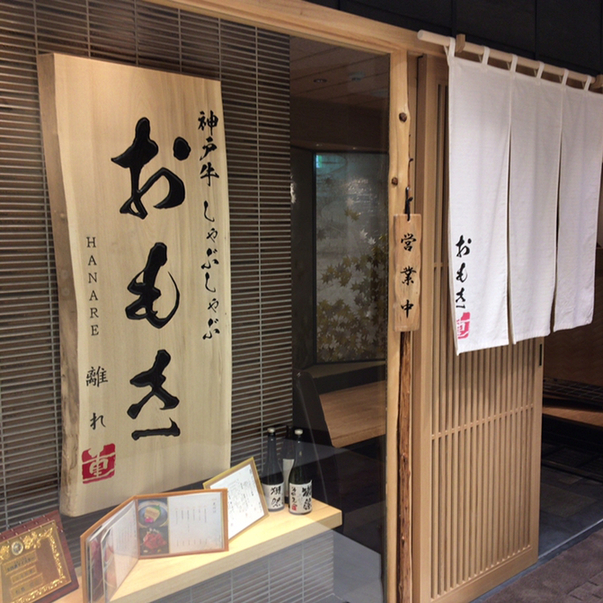 神戸牛 しゃぶしゃぶ
おもき
HANARE 離れ
重
営業中
おもき
重
獺祭